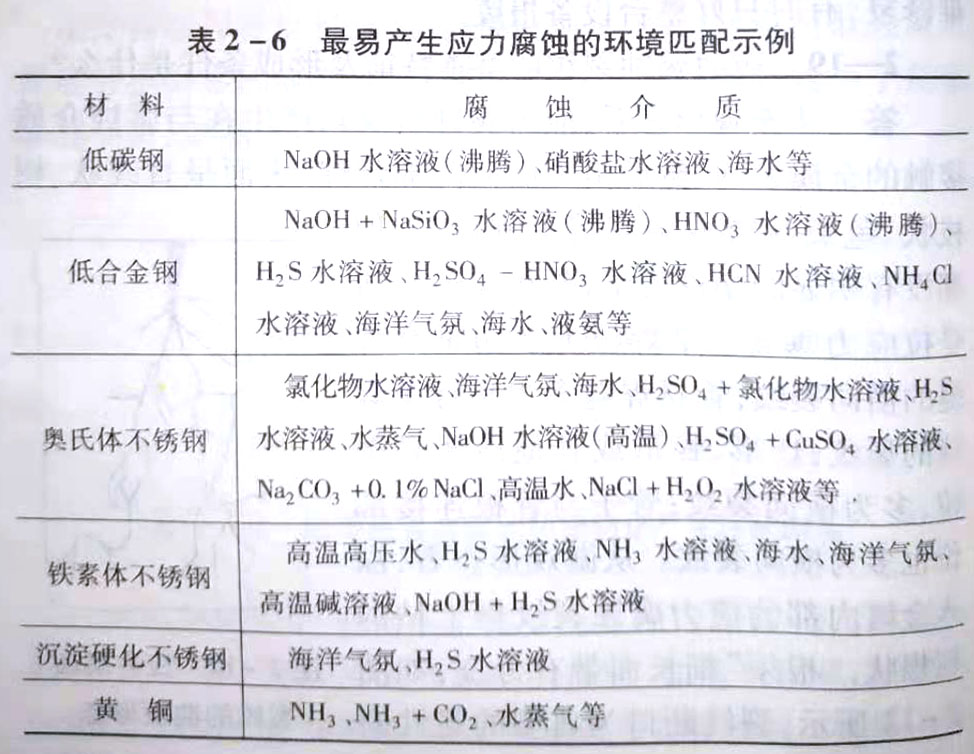 表2-6 最易产生应力腐蚀的环境匹配示例
材 料 腐 蚀 介 质
低碳钢 NaOH 水溶液(沸腾)、硝酸盐水溶液、海水等
NaOH + NaSiO₃ 水溶液(沸腾)、HNO₃ 水溶液(沸腾)、
低合金钢 H₂S 水溶液、H₂SO₄ - HNO₃ 水溶液、HCN 水溶液、NH₄Cl
水溶液、海洋气氛、海水、液氨等
氯化物水溶液、海洋气氛、海水、H₂SO₄ + 氯化物水溶液、H₂S
奥氏体不锈钢 水溶液、水蒸气、NaOH 水溶液(高温)、H₂SO₄ + CuSO₄ 水溶液、
Na₂CO₃ +0.1% NaCl、高温水、NaCl + H₂O₂ 水溶液等
铁素体不锈钢 高温高压水、H₂S 水溶液、NH₃ 水溶液、海水、海洋气氛、
高温碱溶液、NaOH + H₂S 水溶液
沉淀硬化不锈钢 海洋气氛、H₂S 水溶液
黄 铜 NH₃、NH₃ + CO₂、水蒸气等